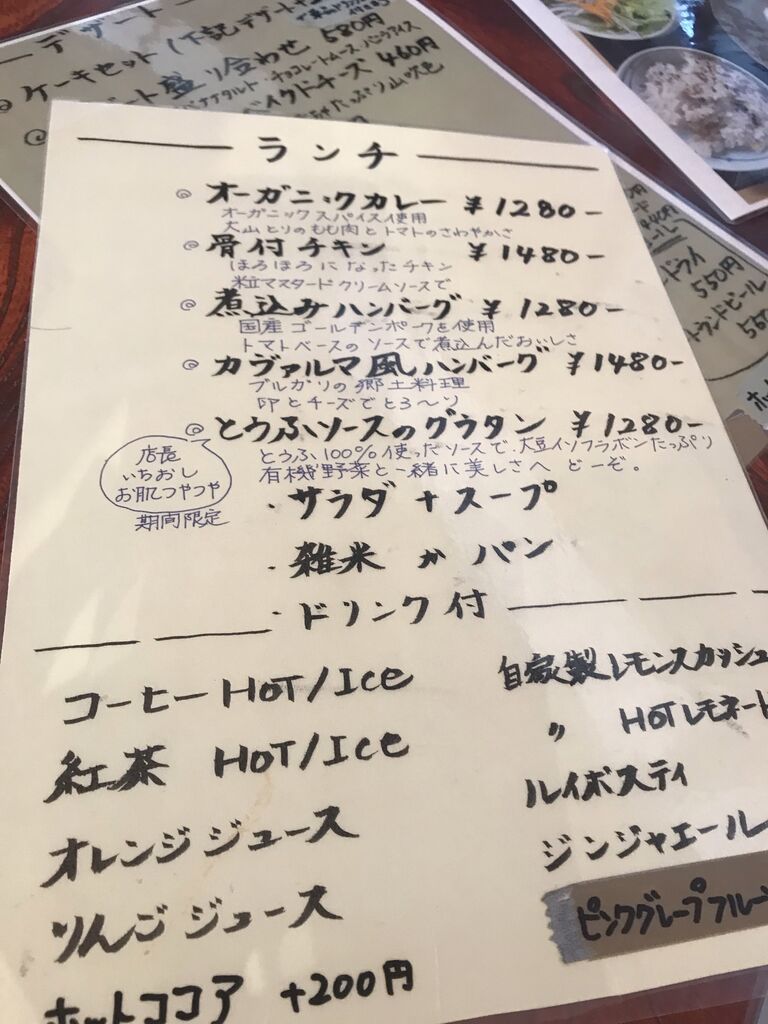 デザート
ケーキセット
盛り合わせ 680円
チョコレートムース・バニラアイス
ベイクドチーズ 460円
ランチ
◎ オーガニックカレー ¥1280-
オーガニックスパイス使用
大山とりのもも肉とトマトのさわやかさ
◎ 骨付チキン ¥1480-
ほろほろになったチキン
粒マスタードクリームソースで
◎ 煮込みハンバーグ ¥1280-
国産ゴールデンポークを使用
トマトベースのソースで煮込んだおいしさ
◎ カヴァルマ風ハンバーグ ¥1480-
ブルガリの郷土料理
卵とチーズでとろ〜り
◎ とうふソースのグラタン ¥1280-
とうふ100%使ったソースで、大豆イソフラボンたっぷり
有機野菜と一緒に美しさへ どーぞ。
店長
いちおし
お肌つやつや
期間限定
・サラダ+スープ
・雑米 か パン
・ドリンク付
コーヒー HOT/Ice
紅茶 HOT/Ice
オレンジジュース
りんごジュース
ホットココア +200円
自家製レモンスカッシュ
〃 HOTレモネード
ルイボスティ
ジンジャエール
ピンクグレープフルー
ドライ
550円
ビール